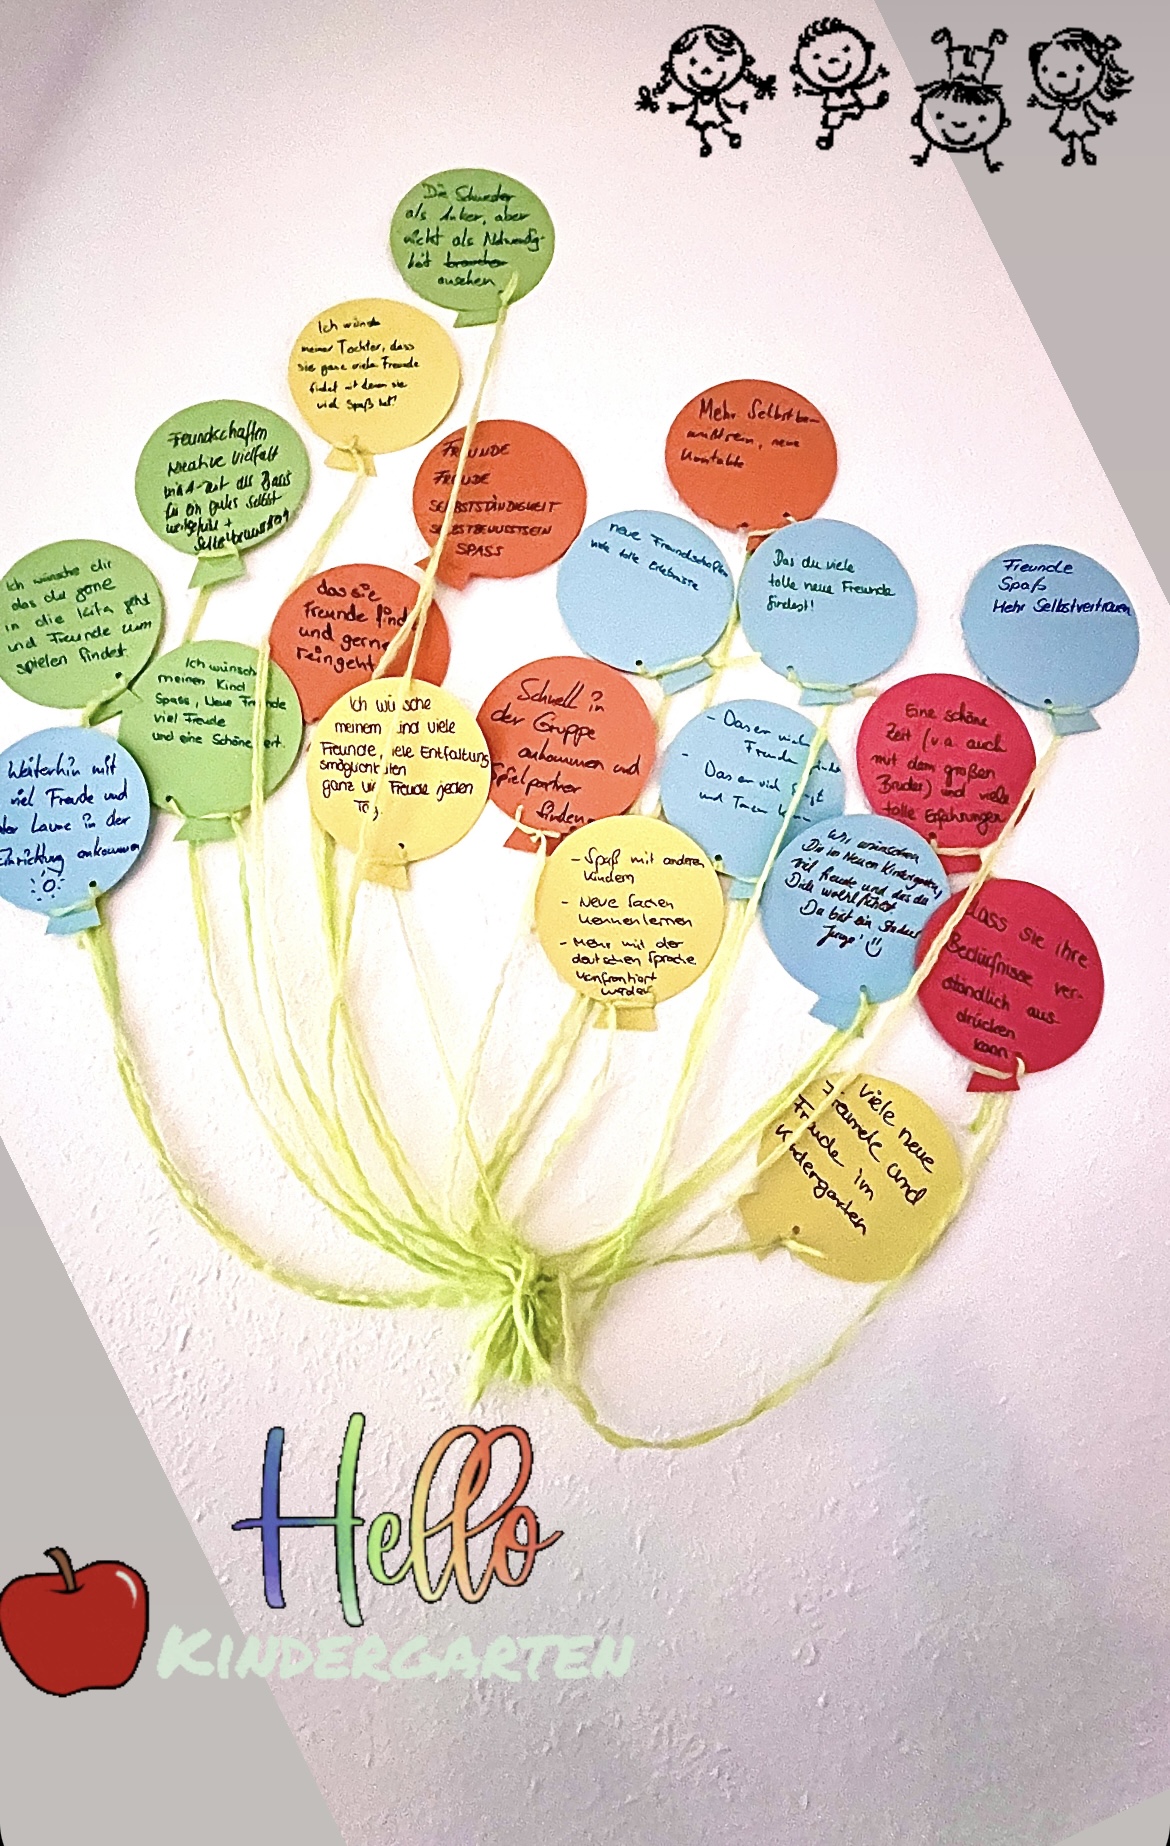 Die Schwester
als Anker, aber
nicht als Notwendig-
keit brauchen
ansehen
Ich wünsche
meiner Tochter, dass
sie ganz viele Freunde
findet mit denen sie
viel Spaß hat!
Freundschaften
kreative Vielfalt
als Basis
für ein gutes Selbst
wertgefühl +
Selbstbewusstsein
FREUNDE
FREUDE
SELBSTSTÄNDIGKEIT
SELBSTBEWUSSTSEIN
SPASS
Mehr Selbstbe-
wusstsein, neue
Kontakte
neue Freundschaften
viele tolle Erlebnisse
Das du viele
tolle neue Freunde
findest!
Freunde
Spaß
Mehr Selbstvertrauen
Ich wünsche dir
das du gerne
in die Kita gehst
und Freunde zum
spielen findest.
das sie
Freunde find
und gerne
reingeht
Ich wünsch
meinen Kind
Spass, Neue Freunde
viel Freude
und eine Schöne
Ich wünsche
meinem Kind viele
Freunde, viele Entfaltungs
smöglichkeiten
ganz viel Freude jeden
Tag.
Schnell in
der Gruppe
ankommen und
Spielpartner
finden
- Das er viele
Freunde findet
- Das er viel singt
und Tanzen kann
Eine schöne
Zeit (v.a. auch
mit dem großen
Bruder) und viele
tolle Erfahrungen
Weiterhin mit
viel Freude und
Laune in der
Einrichtung ankommen
- Spaß mit anderen
Kindern
- Neue Sachen
kennenlernen
- Mehr mit der
deutschen Sprache
konfrontiert
werden
Wir wünschen
Dir im Neuen Kindergarten,
viel freude und das du
Dich wohl fühlst.
Du bist ein starker
Junge!
dass sie ihre
Bedürfnisse ver-
ständlich aus-
drücken
kann
Viele neue
Freunde und
Freude im
Kindergarten
Hello
KINDERGARTEN